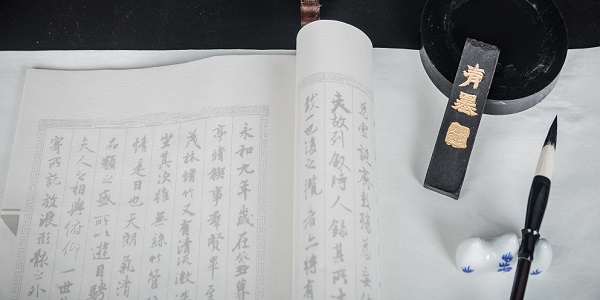 為虛誕齊彭殤為妄
夫故列敘時人錄其所述
致一也後之攬者亦將有
永和九年歲在癸丑暮
亭脩稧事羣賢畢
茂林脩竹又有清流激
坐其次雖無絲竹管
情是日也天朗氣清
品類之盛所以遊目騁
夫人之相與俯仰一世
寄所託放浪形骸之外
青墨